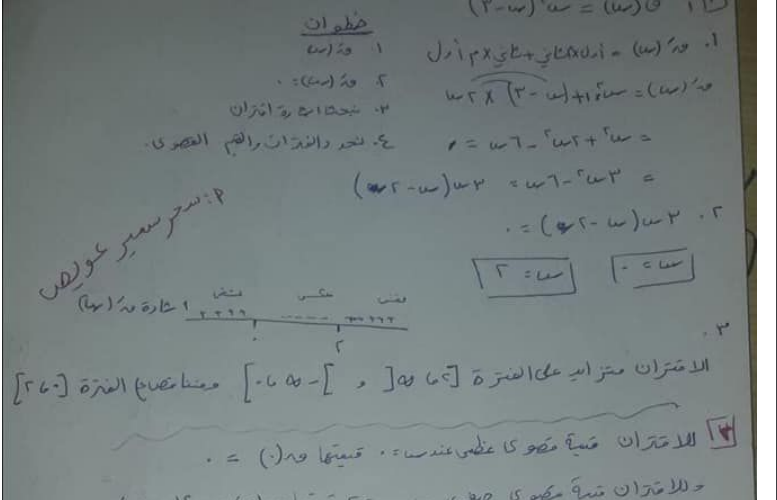 ق(س) = س² (س-٣)
خطوات
١. قَ(س)
٢. قَ(س) = ٠
٣. نبحث اشارة اقتران
٤. نحدد الفترات والقيم القصوى.
١. قَ(س) = أول × م الثاني + ثاني × م أول
قَ(س) = س² × ١ + (س - ٣) × ٢س
= س² + ٢س² - ٦س = ٠
= ٣س² - ٦س = ٣س(س - ٢)
٢. ٣س(س - ٢) = ٠
س = ٠ س = ٢
أ. سحر سمير عويص
اشارة قَ(س)
++++ ---- +++++
٠ ٢
٣.
الاقتران متزايد على الفترة [٢، ∞[ و ]-∞، ٠] ومتناقص على الفترة [٠، ٢]
للاقتران قيمة قصوى عظمى عند س = ٠ قيمتها ق(٠) = ٠
وللاقتران قيمة قصوى